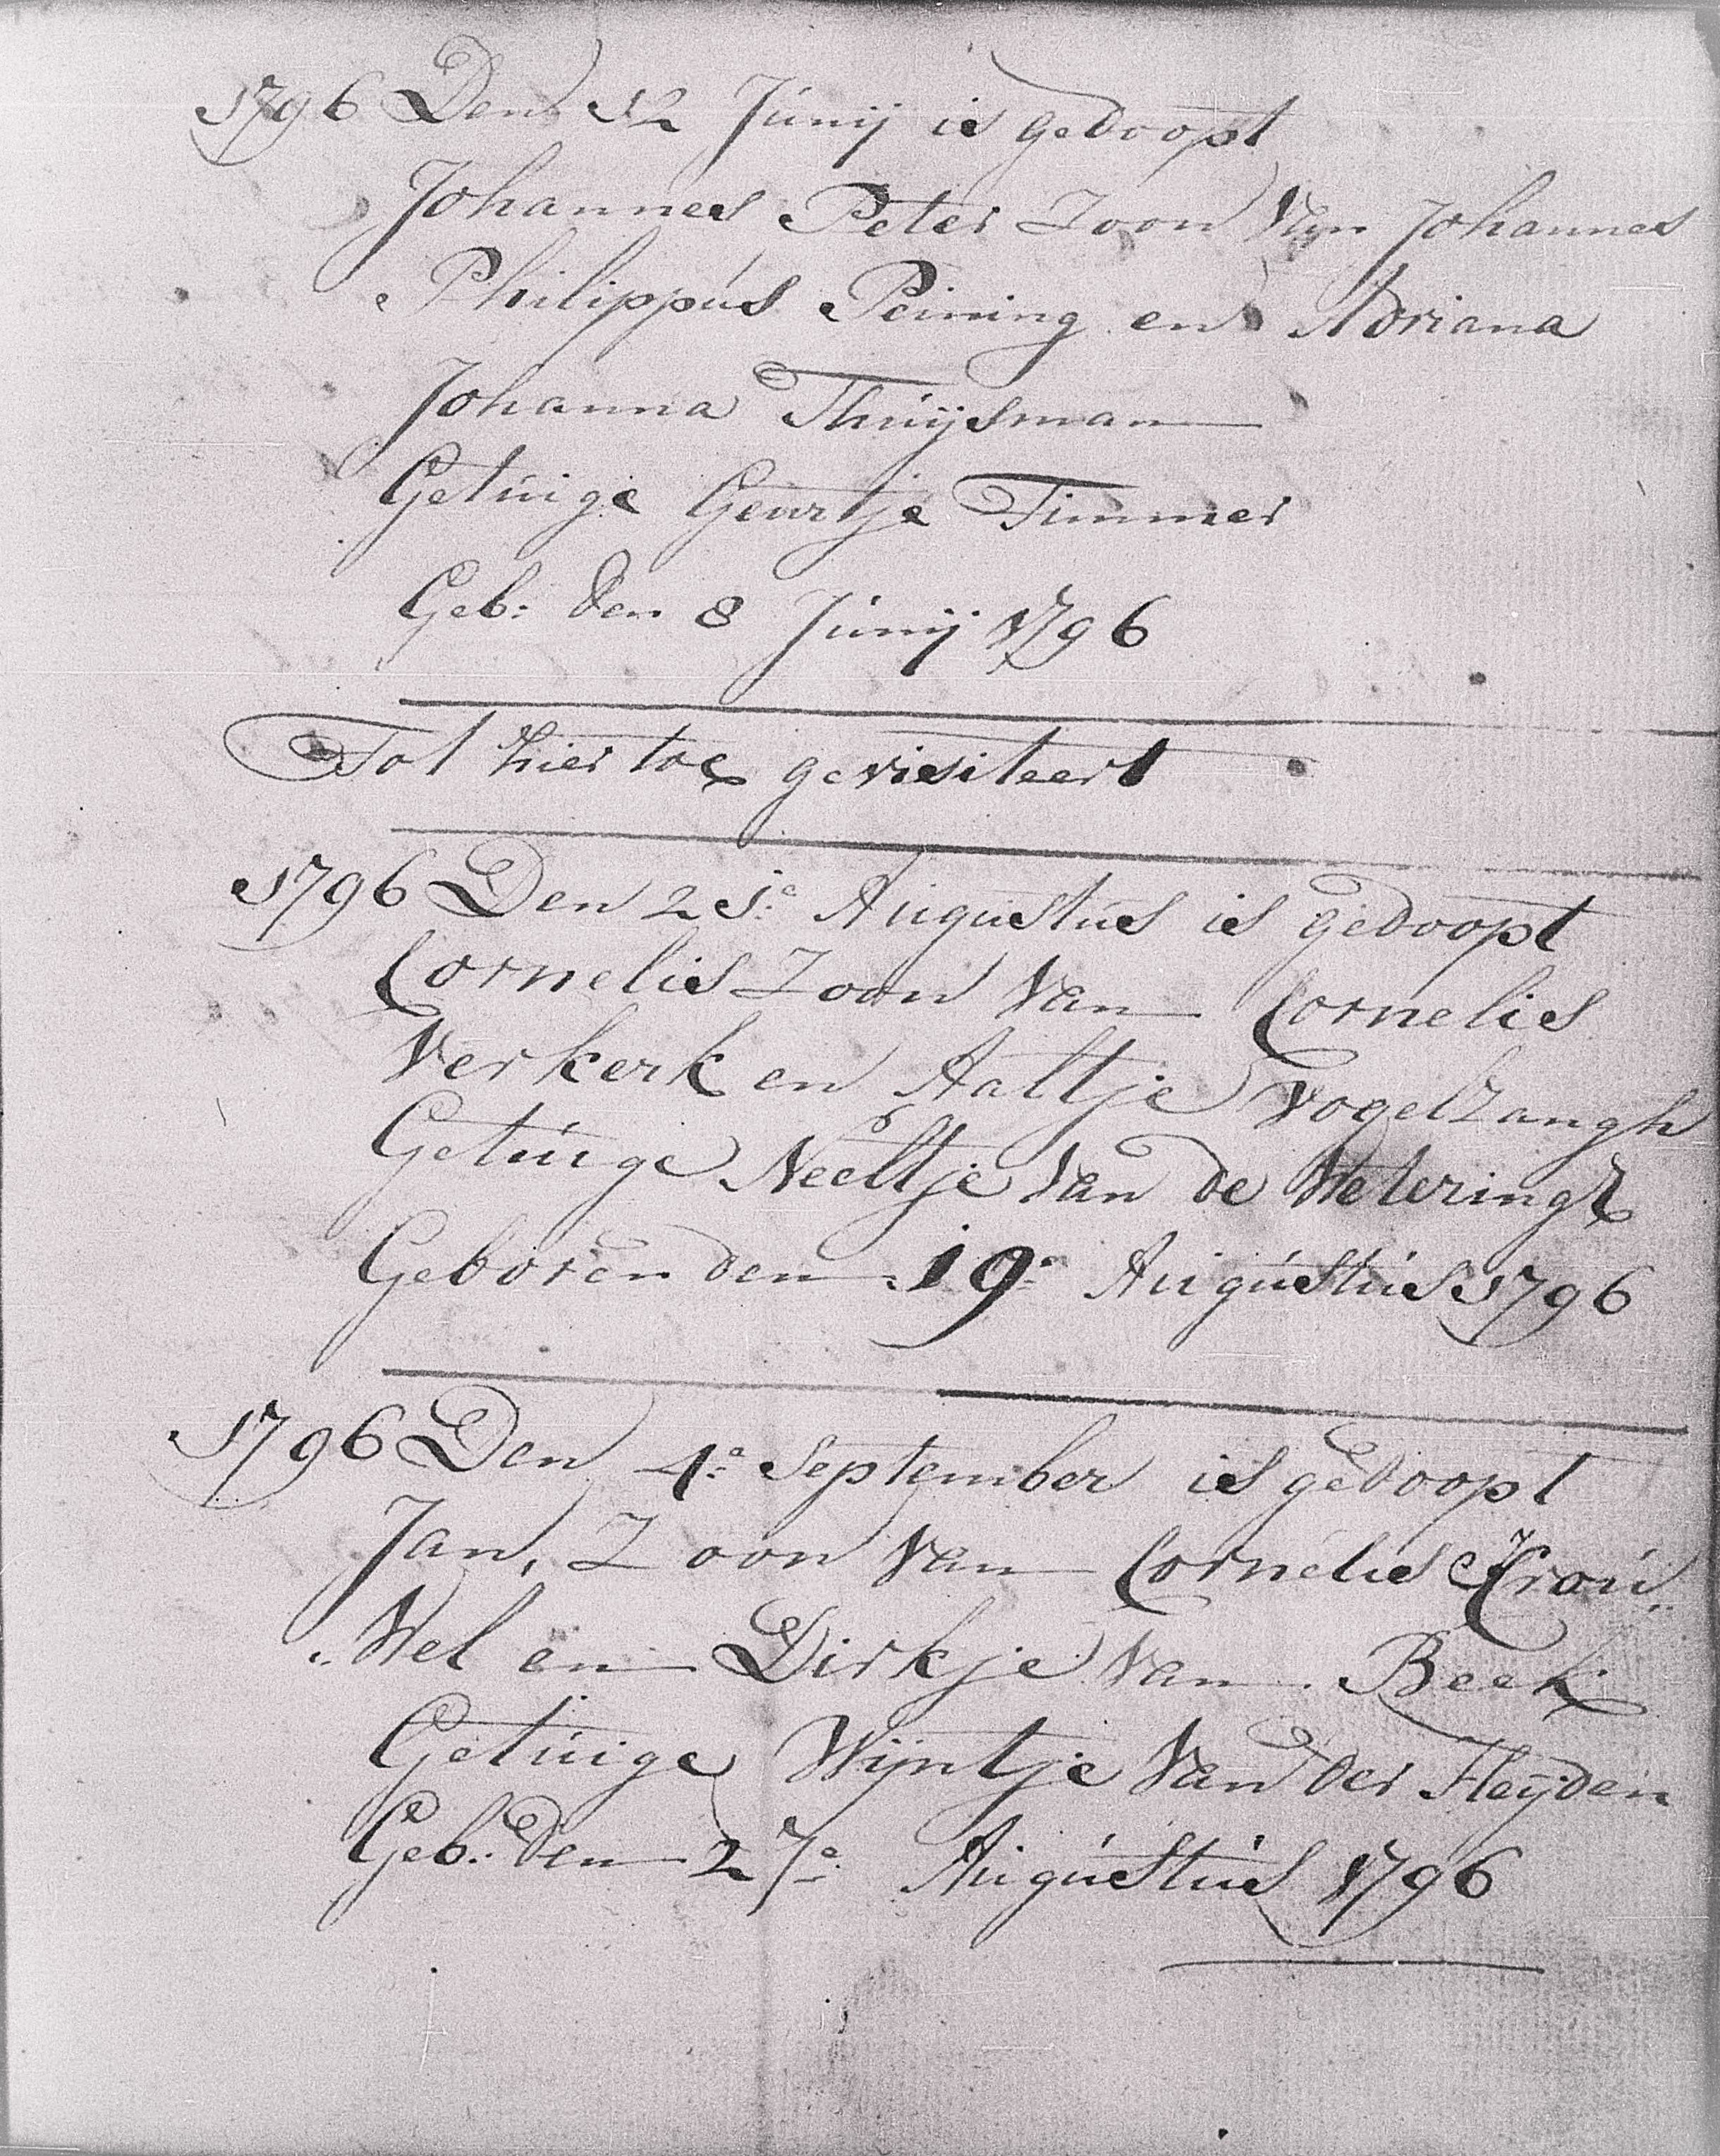 1796 Den 12 Junij is gedoopt
Johannes Peter Zoon Van Johannes
Philippus Peining en Adriana
Johanna Thuijsman
Getuige Geurtje Timmer
Geb: den 8 Junij 1796
Tot hier toe gevisiteert
1796 Den 21e Augustus is gedoopt
Cornelis Zoon Van Cornelis
Verkerk en Aaltje Vogelzangh
Getuige Neeltje Van de Wetering
Geboren den 19e Augustus 1796
1796 Den 4e September is gedoopt
Jan, Zoon Van Cornelis Krou„
„Wel en Dirkje Van Beek
Getuige Wijntje Van der Heijden
Geb: den 27e Augustus 1796